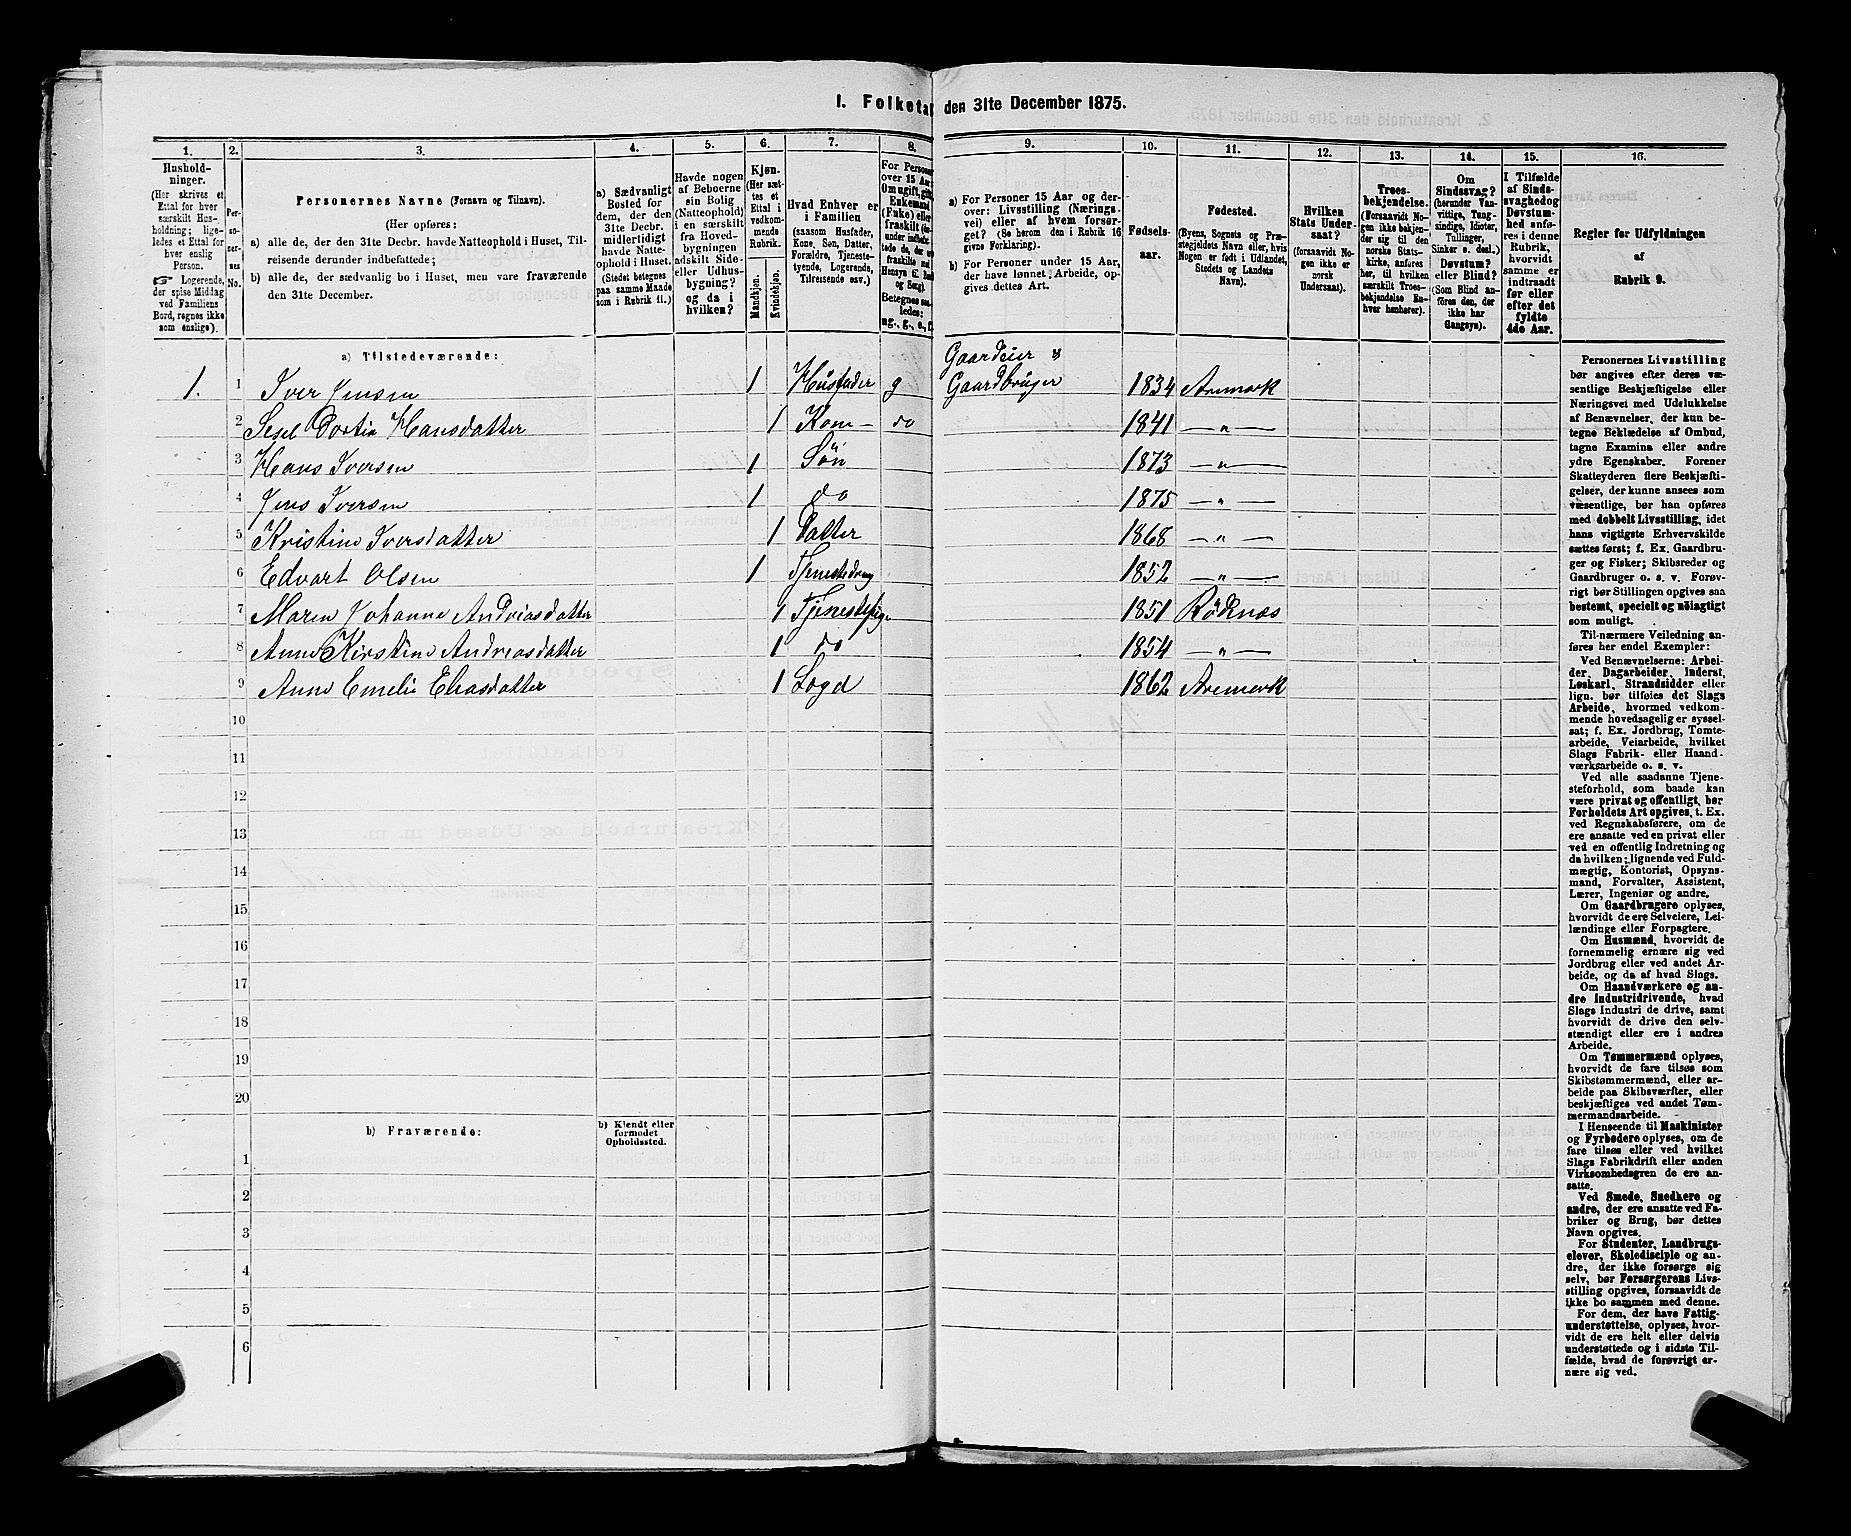 1. Folketal den 31te December 1875.
1. 2. 3. 4. 5. 6. 7. 8. 9. 10. 11. 12. 13. 14. 15. 16.
Hushold-
ninger.
(Her skrives et
Ettal for hver
særskilt Hus-
holdning; lige-
ledes et Ettal for
hver enslig
Person.
☞ Logerende,
der spise Middag
ved Familiens
Bord, regnes ikke
som enslige).
Per-
so-
ner-
nes
No.
Personernes Navne (Fornavn og Tilnavn).
(Her opføres:
a) alle de, der den 31te Decbr. havde Natteophold i Huset, Til-
reisende derunder indbefattede;
b) alle de, der sædvanlig bo i Huset, men vare fraværende
den 31te December.
a) Sædvanligt
Bosted for
dem, der den
31te Decbr.
midlertidigt
havde Natte-
ophold i Huset.
(Stedet betegnes
paa samme Maade
som i Rubrik 11.)
Havde nogen
af Beboerne
sin Bolig
(Natteophold)
i en særskilt
fra Hoved-
bygningen
adskilt Side-
eller Udhus-
bygning?
og da i
hvilken?
Kjøn.
(Her sæt-
tes et
Ettal i
vedkom-
mende
Rubrik.
Mandkjøn.
Kvindekjøn.
Hvad Enhver er
i Familien
(saasom Husfader,
Kone, Søn, Datter,
Forældre, Tjeneste-
tyende, Logerende,
Tilreisende osv.)
For Personer
over 15 Aar:
Om ugift, gift,
Enkemand
(Enke) eller
fraskilt
Betegnes saa-
ledes:
ug., g., e., f.
a) For Personer 15 Aar og der-
over: Livsstilling (Nærings-
vei) eller af hvem forsør-
get? (Se herom den i Rubrik 16
givne Forklaring).
b) For Personer under 15 Aar,
der have lønnet Arbeide, op-
gives dettes Art.
Fødsels-
aar.
Fødested.
(Byens, Sognets og Præ-
stegjeldets Navn eller, hvis
Nogen er født i Udlandet,
Stedets og Landets
Navn).
Hvilken
Stats Under-
saat?
(forsaavidt No-
gen ikke er
norsk
Undersaat).
Troes-
bekjendelse.
(Forsaavidt No-
gen ikke bekjen-
der sig til den
norske Stats-
kirke, anføres
her, til hvilken
særskilt Troes-
bekjendelse En-
hver henhører).
Om
Sindssvag?
(herunder Van-
vittige, Tung-
sindige, Idioter,
Tullinger,
Sinker o. desl.)
Døvstum?
eller Blind?
(Som Blind an-
føres den, der
ikke har
Gangsyn).
I Tilfælde
af Sinds-
svaghed og
Døvstum-
hed anfø-
res i denne
Rubrik,
hvorvidt
samme er
indtraadt
før eller
efter det
fyldte
4de Aar.
Regler for Udfyldningen
af
Rubrik 9.
a) Tilstedeværende:
Gaardeier &
1. 1 Iver Jensen 1 Husfader g Gaardbruger 1834 Aremark
2 Sesel Dortia Hansdatter 1 Kone do 1841 — " —
3 Hans Iversen 1 Søn 1873 — " —
4 Jens Iversen 1 do 1875 — " —
5 Kristine Iversdatter 1 Datter 1868 — " —
6 Edvart Olsen 1 Tjenestedreng 1852 — " —
7 Maren Johanne Andreasdatter 1 Tjenestepige 1851 Rødenæs
8 Anne Kirstine Andreasdatter 1 do 1854 — " —
9 Anne Emelie Eliasdatter 1 Logd 1862 Aremark
10
11
12
13
14
15
16
17
18
19
20
b) Fraværende:
b) Kjendt eller
formodet
Opholdssted.
1
2
3
4
5
6
Personernes Livsstilling
bør angives efter deres væ-
sentlige Beskjæftigelse eller
Næringsvei med Udelukkelse
af Benævnelser, der kun be-
tegne Beklædelse af Ombud,
tagne Examina eller andre
ydre Egenskaber. Forener
Skatteyderen flere Beskjæfti-
gelser, der kunne ansees som
væsentlige, bør han opføres
med dobbelt Livsstilling, idet
hans vigtigste Erhvervskilde
sættes først; f. Ex. Gaardbru-
ger og Fisker; Skibsreder og
Gaardbruger o. s. v. Forøv-
rigt bør Stillingen opgives saa
bestemt, specielt og nøiagtigt
som muligt.
Til nærmere Veiledning an-
føres her endel Exempler:
Ved Benævnelserne: Arbei-
der, Dagarbeider, Inderst,
Løskarl, Strandsidder eller
lign. bør tilføies det Slags
Arbeide, hvormed vedkom-
mende hovedsagelig er syssel-
sat; f. Ex. Jordbrug, Tomte-
arbeide, Veiarbeide, hvilket
Slags Fabrik- eller Haand-
værksarbeide o. s. v.
Ved alle saadanne Tjene-
steforhold, som baade kan
være privat og offentligt, bør
Forholdets Art opgives, t. Ex.
ved Regnskabsførere, om de
ere ansatte ved en privat eller
ved en offentlig Indretning og
da hvilken; lignende ved Fuld-
mægtig, Kontorist, Opsyns-
mand, Forvalter, Assistent,
Lærer, Ingeniør og andre.
Om Gaardbrugere oplyses,
hvorvidt de ere Selveiere, Lei-
lændinge eller Forpagtere.
Om Husmænd, hvorvidt de
fornemmelig ernære sig ved
Jordbrug eller ved andet Ar-
beide, og da af hvad Slags.
Om Haandværkere og an-
dre Industridrivende, hvad
Slags Industri de drive, samt
hvorvidt de drive den selv-
stændigt eller ere i andres
Arbeide.
Om Tømmermænd oplyses,
hvorvidt de fare tilsøs som
Skibstømmermænd, eller ar-
beide paa Skibsværfter, eller
beskjæftiges ved andet Tøm-
mermandsarbeide.
I Henseende til Maskinister
og Fyrbødere oplyses, om de
fare tilsøs eller ved hvilket
Slags Fabrikdrift eller anden
Virksomhedsgren de ere an-
satte.
Ved Smede, Snedkere og
andre, der ere ansatte ved Fa-
briker og Brug, bør dettes
Navn opgives.
For Studenter, Landbrugs-
elever, Skoledisciple og an-
dre, der ikke forsørge sig
selv, bør Forsørgerens Livs-
stilling opgives, forsaavidt de
ikke bo sammen med denne.
For dem, der have Fattig-
understøttelse, oplyses, hvor-
vidt de ere helt eller delvis
understøttede og i sidste Til-
fælde, hvad de forøvrigt er-
nære sig ved.